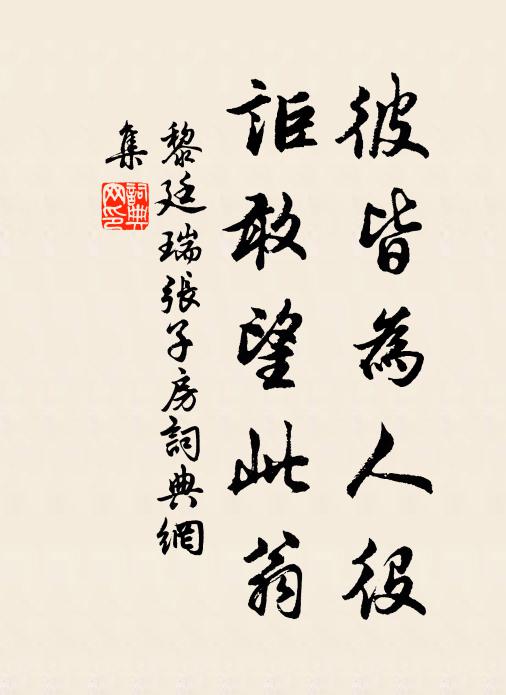 彼皆為人役
詎敢望此翁
黎廷瑞張子房詞典網
集
詞典
网印